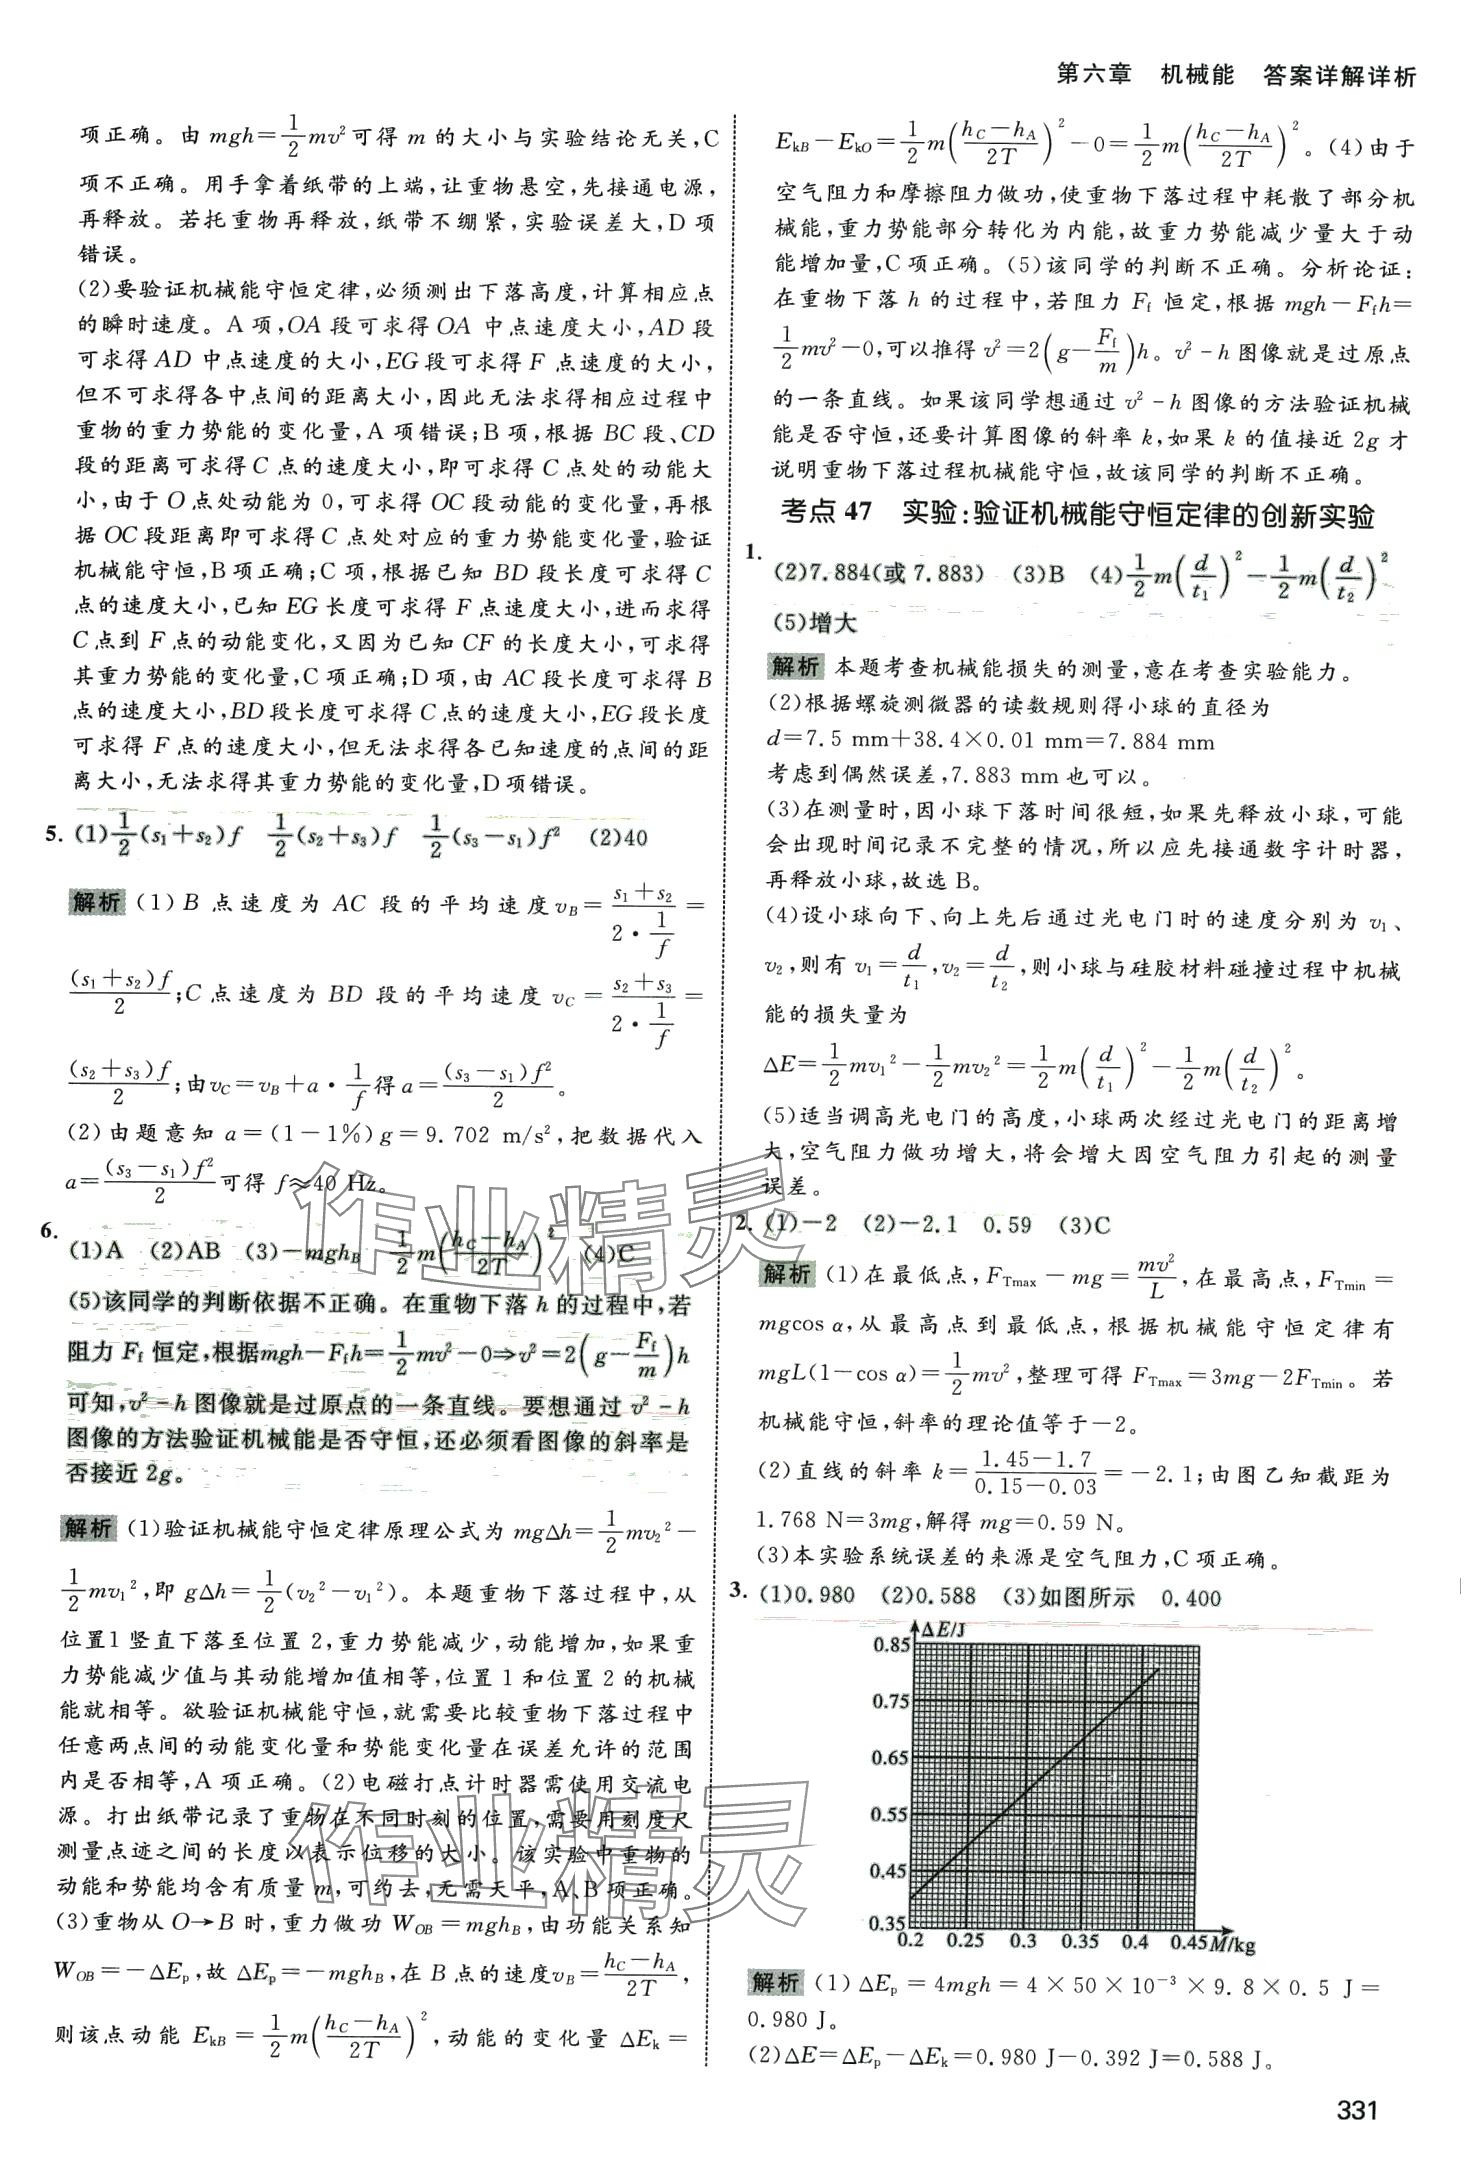 第六章 机械能 答案详解详析
项正确。由 mgh=\frac{1}{2}mv²可得 m 的大小与实验结论无关,C
项不正确。用手拿着纸带的上端,让重物悬空,先接通电源,
再释放。若托重物再释放,纸带不绷紧,实验误差大,D 项
错误。
(2)要验证机械能守恒定律,必须测出下落高度,计算相应点
的瞬时速度。A 项,OA 段可求得 OA 中点速度大小,AD 段
可求得 AD 中点速度的大小,EG段可求得 F 点速度的大小,
但不可求得各中点间的距离大小,因此无法求得相应过程中
重物的重力势能的变化量,A 项错误;B 项,根据 BC 段、CD
段的距离可求得C 点的速度大小,即可求得 C 点处的动能大
小,由于 O 点处动能为 0,可求得 OC段动能的变化量,再根
据 OC段距离即可求得 C 点处对应的重力势能变化量,验证
机械能守恒,B项正确;C 项,根据已知 BD 段长度可求得 C
点的速度大小,已知 EG 长度可求得 F 点速度大小,进而求得
C点到 F点的动能变化,又因为已知 CF 的长度大小,可求得
其重力势能的变化量,C项正确;D项,由 AC段长度可求得 B
点的速度大小,BD段长度可求得 C点的速度大小,EG段长度
可求得 F 点的速度大小,但无法求得各已知速度的点间的距
离大小,无法求得其重力势能的变化量,D 项错误。
5. (1)\frac{1}{2}(s₁+s₂)f \frac{1}{2}(s₂+s₃)f \frac{1}{2}(s₃-s₁)f² (2)40
解析 (1)B 点速度为 AC 段的平均速度v_B=\frac{s₁+s₂}{2·\frac{1}{f}}=
\frac{(s₁+s₂)f}{2};C 点速度为 BD 段的平均速度 v_C=\frac{s₂+s₃}{2·\frac{1}{f}}=
\frac{(s₂+s₃)f}{2};由v_C=v_B+a·\frac{1}{f}得 a=\frac{(s₃-s₁)f²}{2}。
(2)由题意知 a=(1-1%)g=9.702 m/s²,把数据代入
a=\frac{(s₃-s₁)f²}{2}可得 f≈40 Hz。
6. (1)A (2)AB (3)-mgh_B \frac{1}{2}m(\frac{h_C-h_A}{2T})² (4)C
(5)该同学的判断依据不正确。在重物下落 h 的过程中,若
阻力 F_f 恒定,根据mgh-F_fh=\frac{1}{2}mv²-0⇒v²=2(g-\frac{F_f}{m})h
可知,v²-h 图像就是过原点的一条直线。要想通过 v²-h
图像的方法验证机械能是否守恒,还必须看图像的斜率是
否接近 2g。
解析 (1)验证机械能守恒定律原理公式为 mgΔh=\frac{1}{2}mv₂²-
\frac{1}{2}mv₁²,即 gΔh=\frac{1}{2}(v₂²-v₁²)。本题重物下落过程中,从
位置1 竖直下落至位置 2,重力势能减少,动能增加,如果重
力势能减少值与其动能增加值相等,位置 1 和位置 2 的机械
能就相等。欲验证机械能守恒,就需要比较重物下落过程中
任意两点间的动能变化量和势能变化量在误差允许的范围
内是否相等,A 项正确。(2)电磁打点计时器需使用交流电
源。打出纸带记录了重物在不同时刻的位置,需要用刻度尺
测量点迹之间的长度以表示位移的大小。该实验中重物的
动能和势能均含有质量 m,可约去,无需天平,A、B 项正确。
(3)重物从 O→B 时,重力做功 W_{OB}=mgh_B,由功能关系知
W_{OB}=-ΔE_p,故 ΔE_p=-mgh_B,在 B 点的速度v_B=\frac{h_C-h_A}{2T},
则该点动能 E_{kB}=\frac{1}{2}m(\frac{h_C-h_A}{2T})²,动能的变化量 ΔE_k=
E_{kB}-E_{kO}=\frac{1}{2}m(\frac{h_C-h_A}{2T})²-0=\frac{1}{2}m(\frac{h_C-h_A}{2T})²。(4)由于
空气阻力和摩擦阻力做功,使重物下落过程中耗散了部分机
械能,重力势能部分转化为内能,故重力势能减少量大于动
能增加量,C 项正确。(5)该同学的判断不正确。分析论证:
在重物下落 h 的过程中,若阻力 F_f 恒定,根据 mgh-F_fh=
\frac{1}{2}mv²-0,可以推得 v²=2(g-\frac{F_f}{m})h。v²-h 图像就是过原点
的一条直线。如果该同学想通过 v²-h 图像的方法验证机械
能是否守恒,还要计算图像的斜率 k,如果 k 的值接近 2g 才
说明重物下落过程机械能守恒,故该同学的判断不正确。
考点 47 实验:验证机械能守恒定律的创新实验
1. (2)7.884(或 7.883) (3)B (4)\frac{1}{2}m(\frac{d}{t₁})²-\frac{1}{2}m(\frac{d}{t₂})²
(5)增大
解析 本题考查机械能损失的测量,意在考查实验能力。
(2)根据螺旋测微器的读数规则得小球的直径为
d=7.5 mm+38.4×0.01 mm=7.884 mm
考虑到偶然误差,7.883 mm也可以。
(3)在测量时,因小球下落时间很短,如果先释放小球,可能
会出现时间记录不完整的情况,所以应先接通数字计时器,
再释放小球,故选 B。
(4)设小球向下、向上先后通过光电门时的速度分别为 v₁、
v₂,则有 v₁=\frac{d}{t₁},v₂=\frac{d}{t₂},则小球与硅胶材料碰撞过程中机械
能的损失量为
ΔE=\frac{1}{2}mv₁²-\frac{1}{2}mv₂²=\frac{1}{2}m(\frac{d}{t₁})²-\frac{1}{2}m(\frac{d}{t₂})²。
(5)适当调高光电门的高度,小球两次经过光电门的距离增
大,空气阻力做功增大,将会增大因空气阻力引起的测量
误差。
2. (1)-2 (2)-2.1 0.59 (3)C
解析 (1)在最低点,F_{Tmax}-mg=\frac{mv²}{L},在最高点,F_{Tmin}=
mgcos α,从最高点到最低点,根据机械能守恒定律有
mgL(1-cos α)=\frac{1}{2}mv²,整理可得 F_{Tmax}=3mg-2F_{Tmin}。若
机械能守恒,斜率的理论值等于-2。
(2)直线的斜率 k=\frac{1.45-1.7}{0.15-0.03}=-2.1;由图乙知截距为
1.768 N=3mg,解得 mg=0.59 N。
(3)本实验系统误差的来源是空气阻力,C项正确。
3. (1)0.980 (2)0.588 (3)如图所示 0.400
ΔE/J
0.85
0.75
0.65
0.55
0.45
0.35
0.2 0.25 0.3 0.35 0.4 0.45 M/kg
解析 (1)ΔE_p=4mgh=4×50×10⁻³×9.8×0.5 J=
0.980 J。
(2)ΔE=ΔE_p-ΔE_k=0.980 J-0.392 J=0.588 J。
331
作业精灵
作业精灵